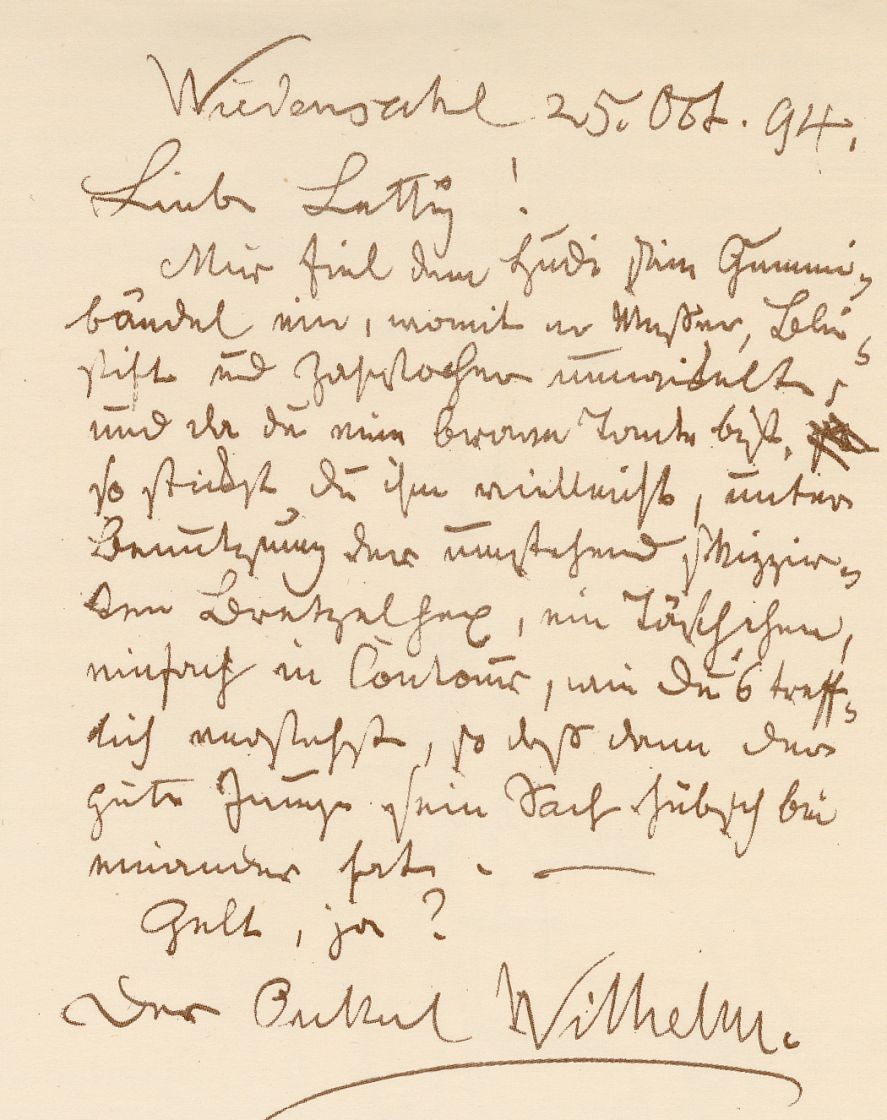 Wiedensahl 25. Okt. 94.
Liebe Letty!
Mir fiel dem Hudi sein Gummi-
bändel ein, womit er Messer, Blei-
stift und Zahnstocher umwickelt,
und da du eine brave Tante bist,
so stickst du ihm vielleicht, unter
Benutzung der umstehend skizzir-
ten Bretzelhex, ein Täschchen,
einfach in Contour, wie Du's treff-
lich verstehst, so daß dann der
gute Junge sein Sach hübsch bei
einander hat. —
Gelt, ja?
Der Onkel Wilhelm.